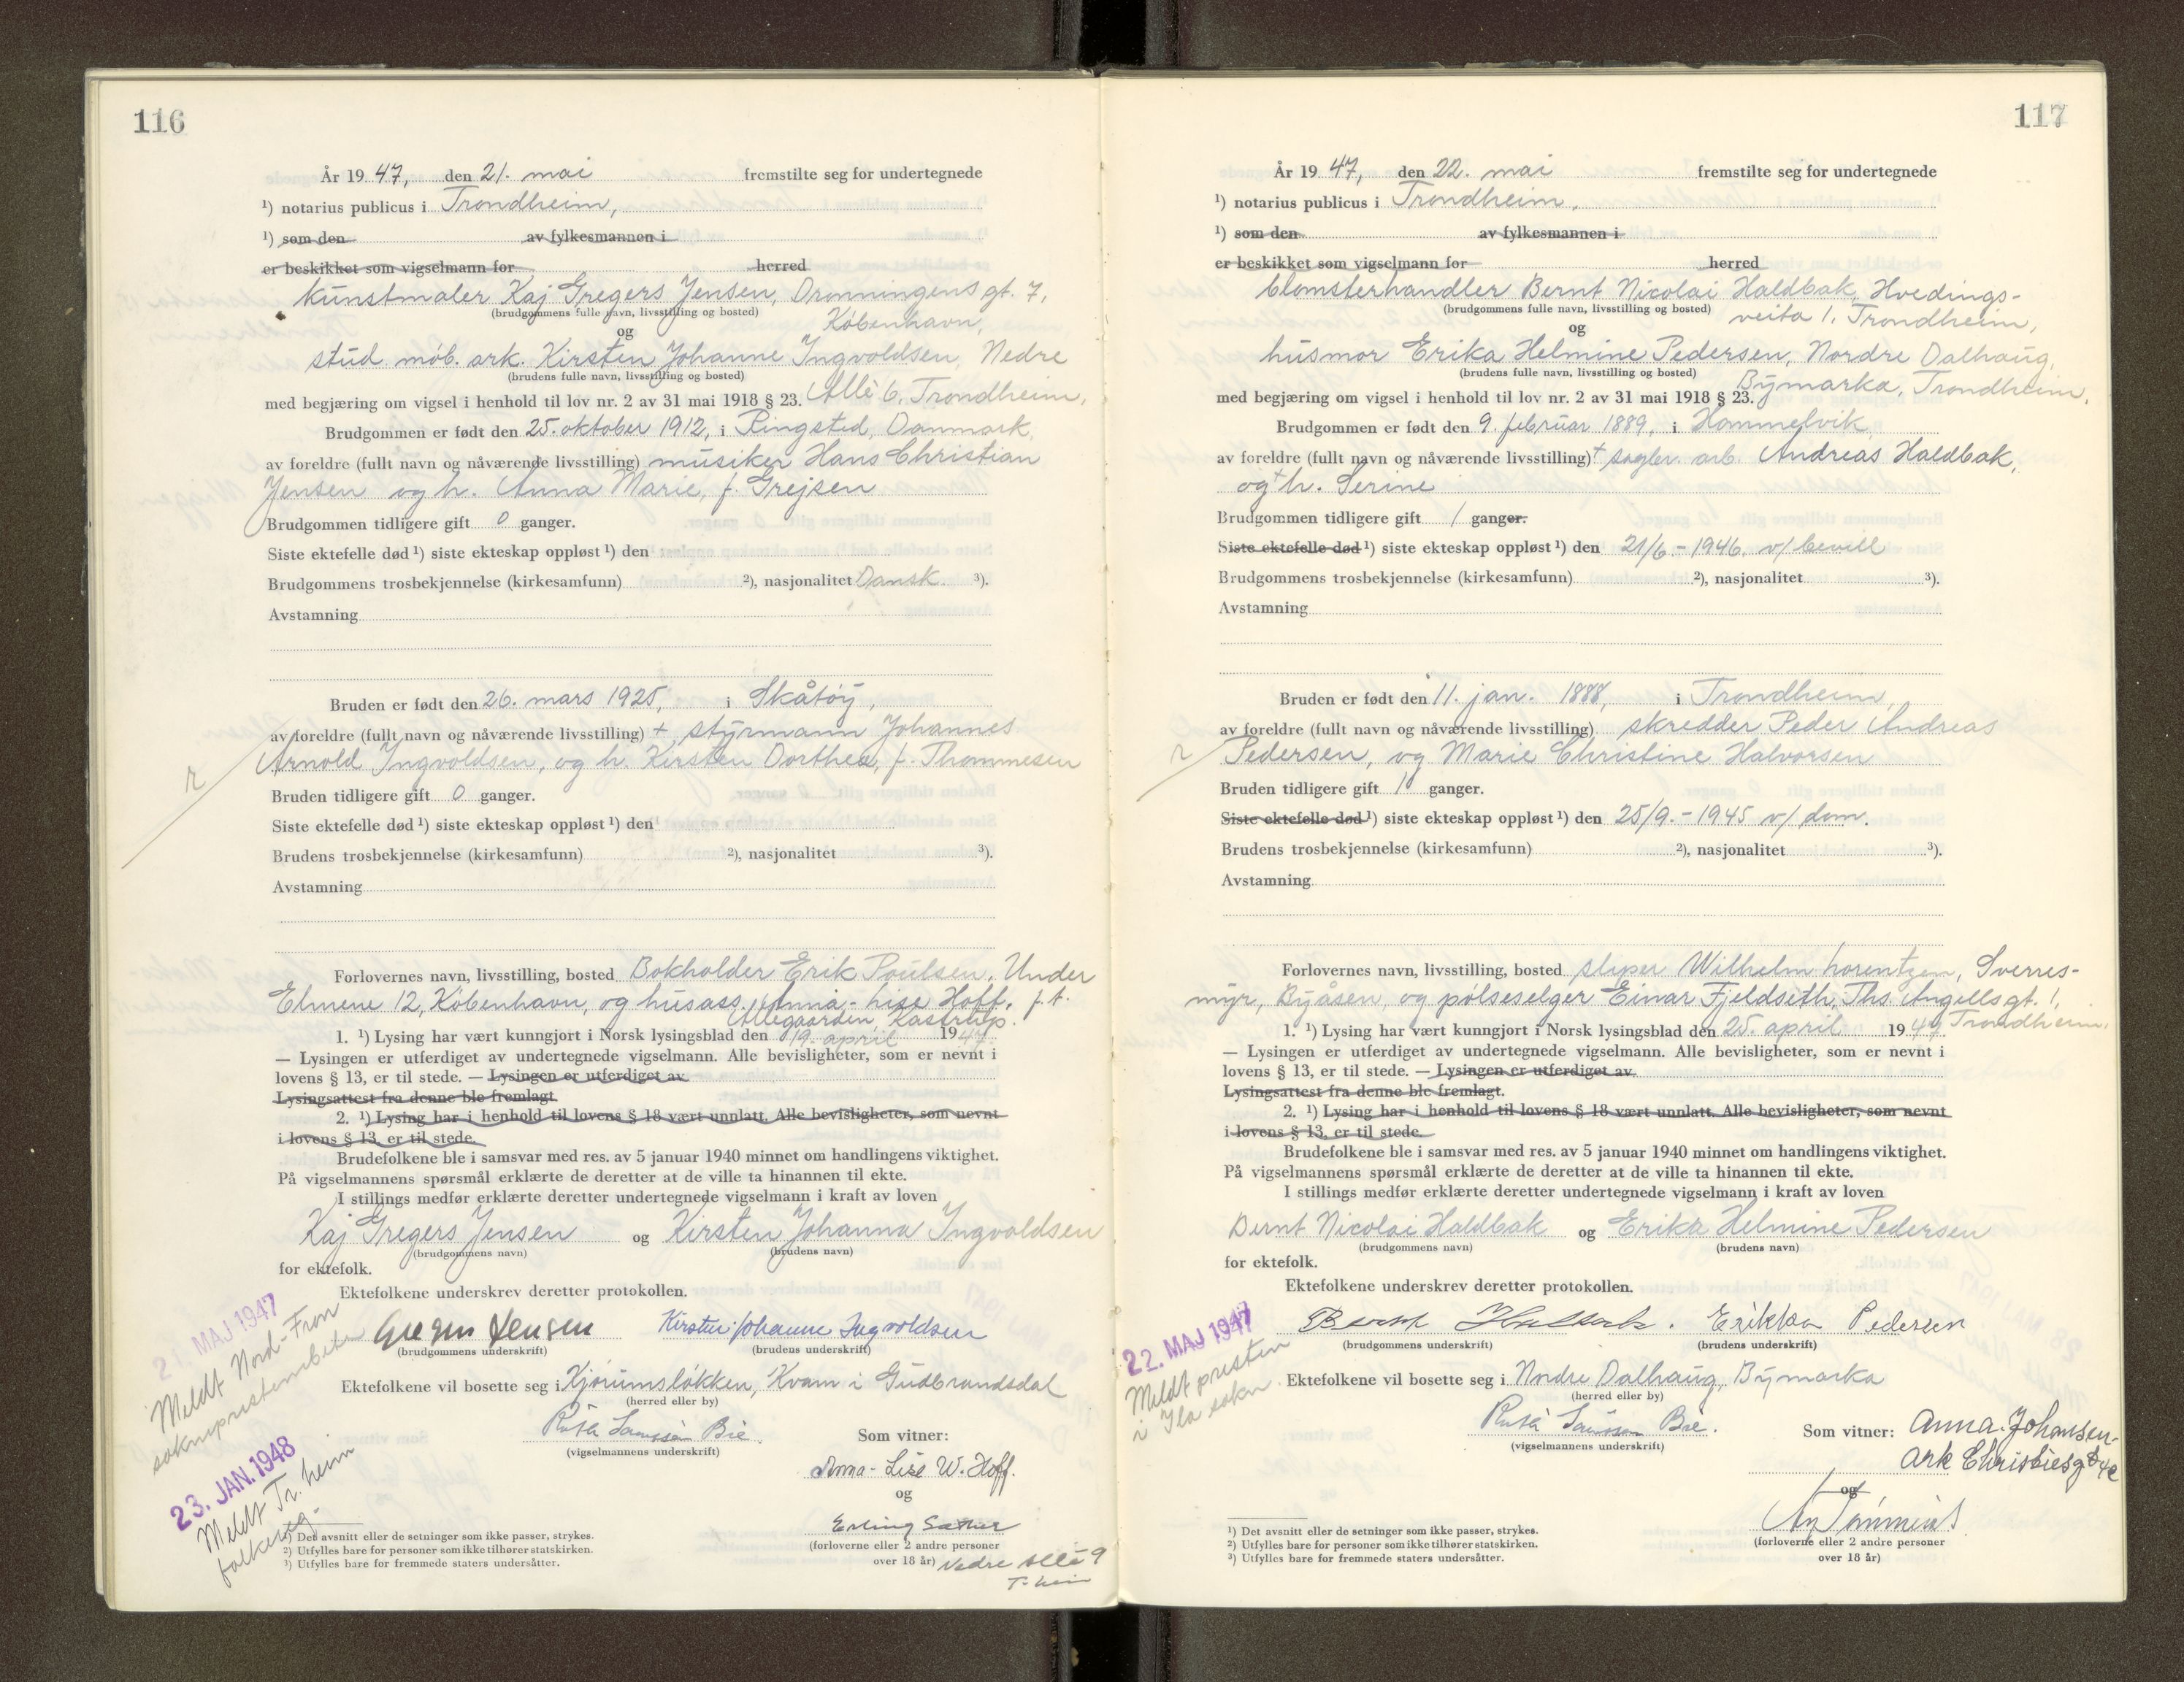 116
År 19 47, den 21. mai fremstilte seg for undertegnede
¹) notarius publicus i Trondheim,
¹) som den av fylkesmannen i
er beskikket som vigselmann for herred
kunstmaler Kaj Gregers Jensen, Dronningens gt. 7,
(brudgommens fulle navn, livsstilling og bosted) København,
og
stud. møb. ark. Kirsten Johanne Ingvoldsen, Nedre
(brudens fulle navn, livsstilling og bosted)
med begjæring om vigsel i henhold til lov nr. 2 av 31 mai 1918 § 23. Allé 6, Trondheim,
Brudgommen er født den 25. oktober 1912, i Ringsted, Danmark,
av foreldre (fullt navn og nåværende livsstilling) musiker Hans Christian
Jensen og h. Anna Marie, f. Grejsen
Brudgommen tidligere gift 0 ganger.
Siste ektefelle død ¹) siste ekteskap oppløst ¹) den
Brudgommens trosbekjennelse (kirkesamfunn) ²), nasjonalitet Dansk. ³).
Avstamning
Bruden er født den 26. mars 1925, i Skåtøy,
av foreldre (fullt navn og nåværende livsstilling) + styrmann Johannes
Arnold Ingvoldsen, og h. Kirsten Dorthea, f. Thommesen
r
Bruden tidligere gift 0 ganger.
Siste ektefelle død ¹) siste ekteskap oppløst ¹) den
Brudens trosbekjennelse (kirkesamfunn) ²), nasjonalitet ³).
Avstamning
Forlovernes navn, livsstilling, bosted Bokholder Erik Poulsen, Under
Elmene 12, København, og husass. Anna-Lise Hoff, f.t.
Allegaarden, Kastrup.
1. ¹) Lysing har vært kunngjort i Norsk lysingsblad den 19. april 1947
— Lysingen er utferdiget av undertegnede vigselmann. Alle bevisligheter, som er nevnt i
lovens § 13, er til stede. — Lysingen er utferdiget av
Lysingsattest fra denne ble fremlagt.
2. ¹) Lysing har i henhold til lovens § 18 vært unnlatt. Alle bevisligheter, som nevnt
i lovens § 13, er til stede.
Brudefolkene ble i samsvar med res. av 5 januar 1940 minnet om handlingens viktighet.
På vigselmannens spørsmål erklærte de deretter at de ville ta hinannen til ekte.
I stillings medfør erklærte deretter undertegnede vigselmann i kraft av loven
Kaj Gregers Jensen og Kirsten Johanna Ingvoldsen
(brudgommens navn) (brudens navn)
for ektefolk.
Ektefolkene underskrev deretter protokollen.
Gregers Jensen Kirsten Johanne Ingvoldsen
(brudgommens underskrift) (brudens underskrift)
Ektefolkene vil bosette seg i Kjørumsløkken, Kvam i Gudbrandsdal
(herred eller by)
(vigselmannens underskrift)
Som vitner:
Anna-Lise W. Hoff.
og
Erling Sæther
(forloverne eller 2 andre personer
over 18 år) Nedre Allé 9
T-heim
21. MAJ 1947
Meldt Nord-Fron
sokneprestembete
23. JAN. 1948
Meldt Tr.heim
folkereg.
¹) Det avsnitt eller de setninger som ikke passer, strykes.
²) Utfylles bare for personer som ikke tilhører statskirken.
³) Utfylles bare for fremmede staters undersåtter.
117
År 19 47, den 22. mai fremstilte seg for undertegnede
¹) notarius publicus i Trondheim,
¹) som den av fylkesmannen i
er beskikket som vigselmann for herred
blomsterhandler Bernt Nicolai Haldbak, Hvedings-
(brudgommens fulle navn, livsstilling og bosted) veita 1, Trondheim,
og
husmor Erika Helmine Pedersen, Nordre Dalhaug,
(brudens fulle navn, livsstilling og bosted)
med begjæring om vigsel i henhold til lov nr. 2 av 31 mai 1918 § 23. Bymarka, Trondheim,
Brudgommen er født den 9. februar 1889, i Hommelvik,
av foreldre (fullt navn og nåværende livsstilling) + sagbr. arb. Andreas Haldbak,
og + h. Serine
Brudgommen tidligere gift 1 ganger.
Siste ektefelle død ¹) siste ekteskap oppløst ¹) den 21/6.-1946. v/ bevill
Brudgommens trosbekjennelse (kirkesamfunn) ²), nasjonalitet ³).
Avstamning
Bruden er født den 11. jan. 1888, i Trondheim,
av foreldre (fullt navn og nåværende livsstilling) skredder Peder Andreas
Pedersen, og Marie Christine Halvorsen
r
Bruden tidligere gift 1 ganger.
Siste ektefelle død ¹) siste ekteskap oppløst ¹) den 25/9.-1945 v/ dom.
Brudens trosbekjennelse (kirkesamfunn) ²), nasjonalitet ³).
Avstamning
Forlovernes navn, livsstilling, bosted sliper Wilhelm Lorentzen, Sverres-
myr, Byåsen, og pølseselger Einar Fjeldseth, Ths. Angellsgt. 1,
1. ¹) Lysing har vært kunngjort i Norsk lysingsblad den 25. april 1947, Trondheim,
— Lysingen er utferdiget av undertegnede vigselmann. Alle bevisligheter, som er nevnt i
lovens § 13, er til stede. — Lysingen er utferdiget av
Lysingsattest fra denne ble fremlagt.
2. ¹) Lysing har i henhold til lovens § 18 vært unnlatt. Alle bevisligheter, som nevnt
i lovens § 13, er til stede.
Brudefolkene ble i samsvar med res. av 5 januar 1940 minnet om handlingens viktighet.
På vigselmannens spørsmål erklærte de deretter at de ville ta hinannen til ekte.
I stillings medfør erklærte deretter undertegnede vigselmann i kraft av loven
Bernt Nicolai Haldbak og Erika Helmine Pedersen
(brudgommens navn) (brudens navn)
for ektefolk.
Ektefolkene underskrev deretter protokollen.
Bernt Haldbak. Erikka Pedersen
(brudgommens underskrift) (brudens underskrift)
Ektefolkene vil bosette seg i Nordre Dalhaug, Bymarka
(herred eller by)
(vigselmannens underskrift)
Som vitner: Anna Johansen
Ark Christiesgt 4c
og
(forloverne eller 2 andre personer
over 18 år)
22. MAJ 1947
Meldt presten
i Ila sokn
¹) Det avsnitt eller de setninger som ikke passer, strykes.
²) Utfylles bare for personer som ikke tilhører statskirken.
³) Utfylles bare for fremmede staters undersåtter.